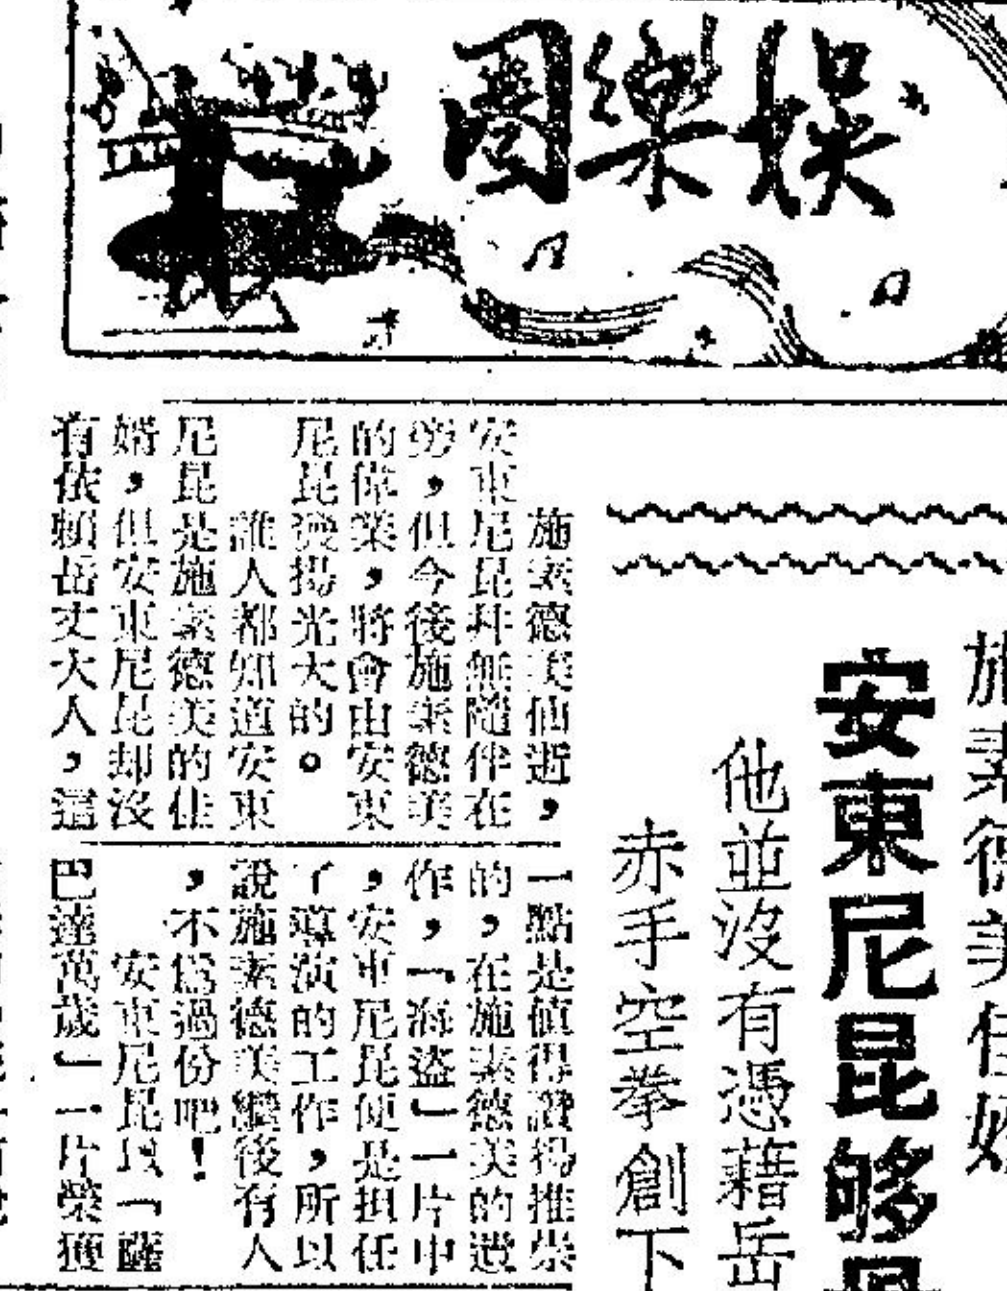 娛樂圈
施素德美佳婿
安東尼昆够
他並沒有憑藉岳
赤手空拳創下
施素德美仙逝，
安東尼昆幷無隨伴在
旁，但今後施素德美
的偉業，將會由安東
尼昆發揚光大的。
誰人都知道安東
尼昆是施素德美的佳
婿，但安東尼昆却沒
有依賴岳丈大人，這
一點是値得讚揚推崇
的，在施素德美的遺
作，「海盜」一片中
，安東尼昆便是担任
了導演的工作，所以
說施素德美繼後有人
，不爲過份吧！
安東尼昆以「薩
巴達萬歲」一片榮獲